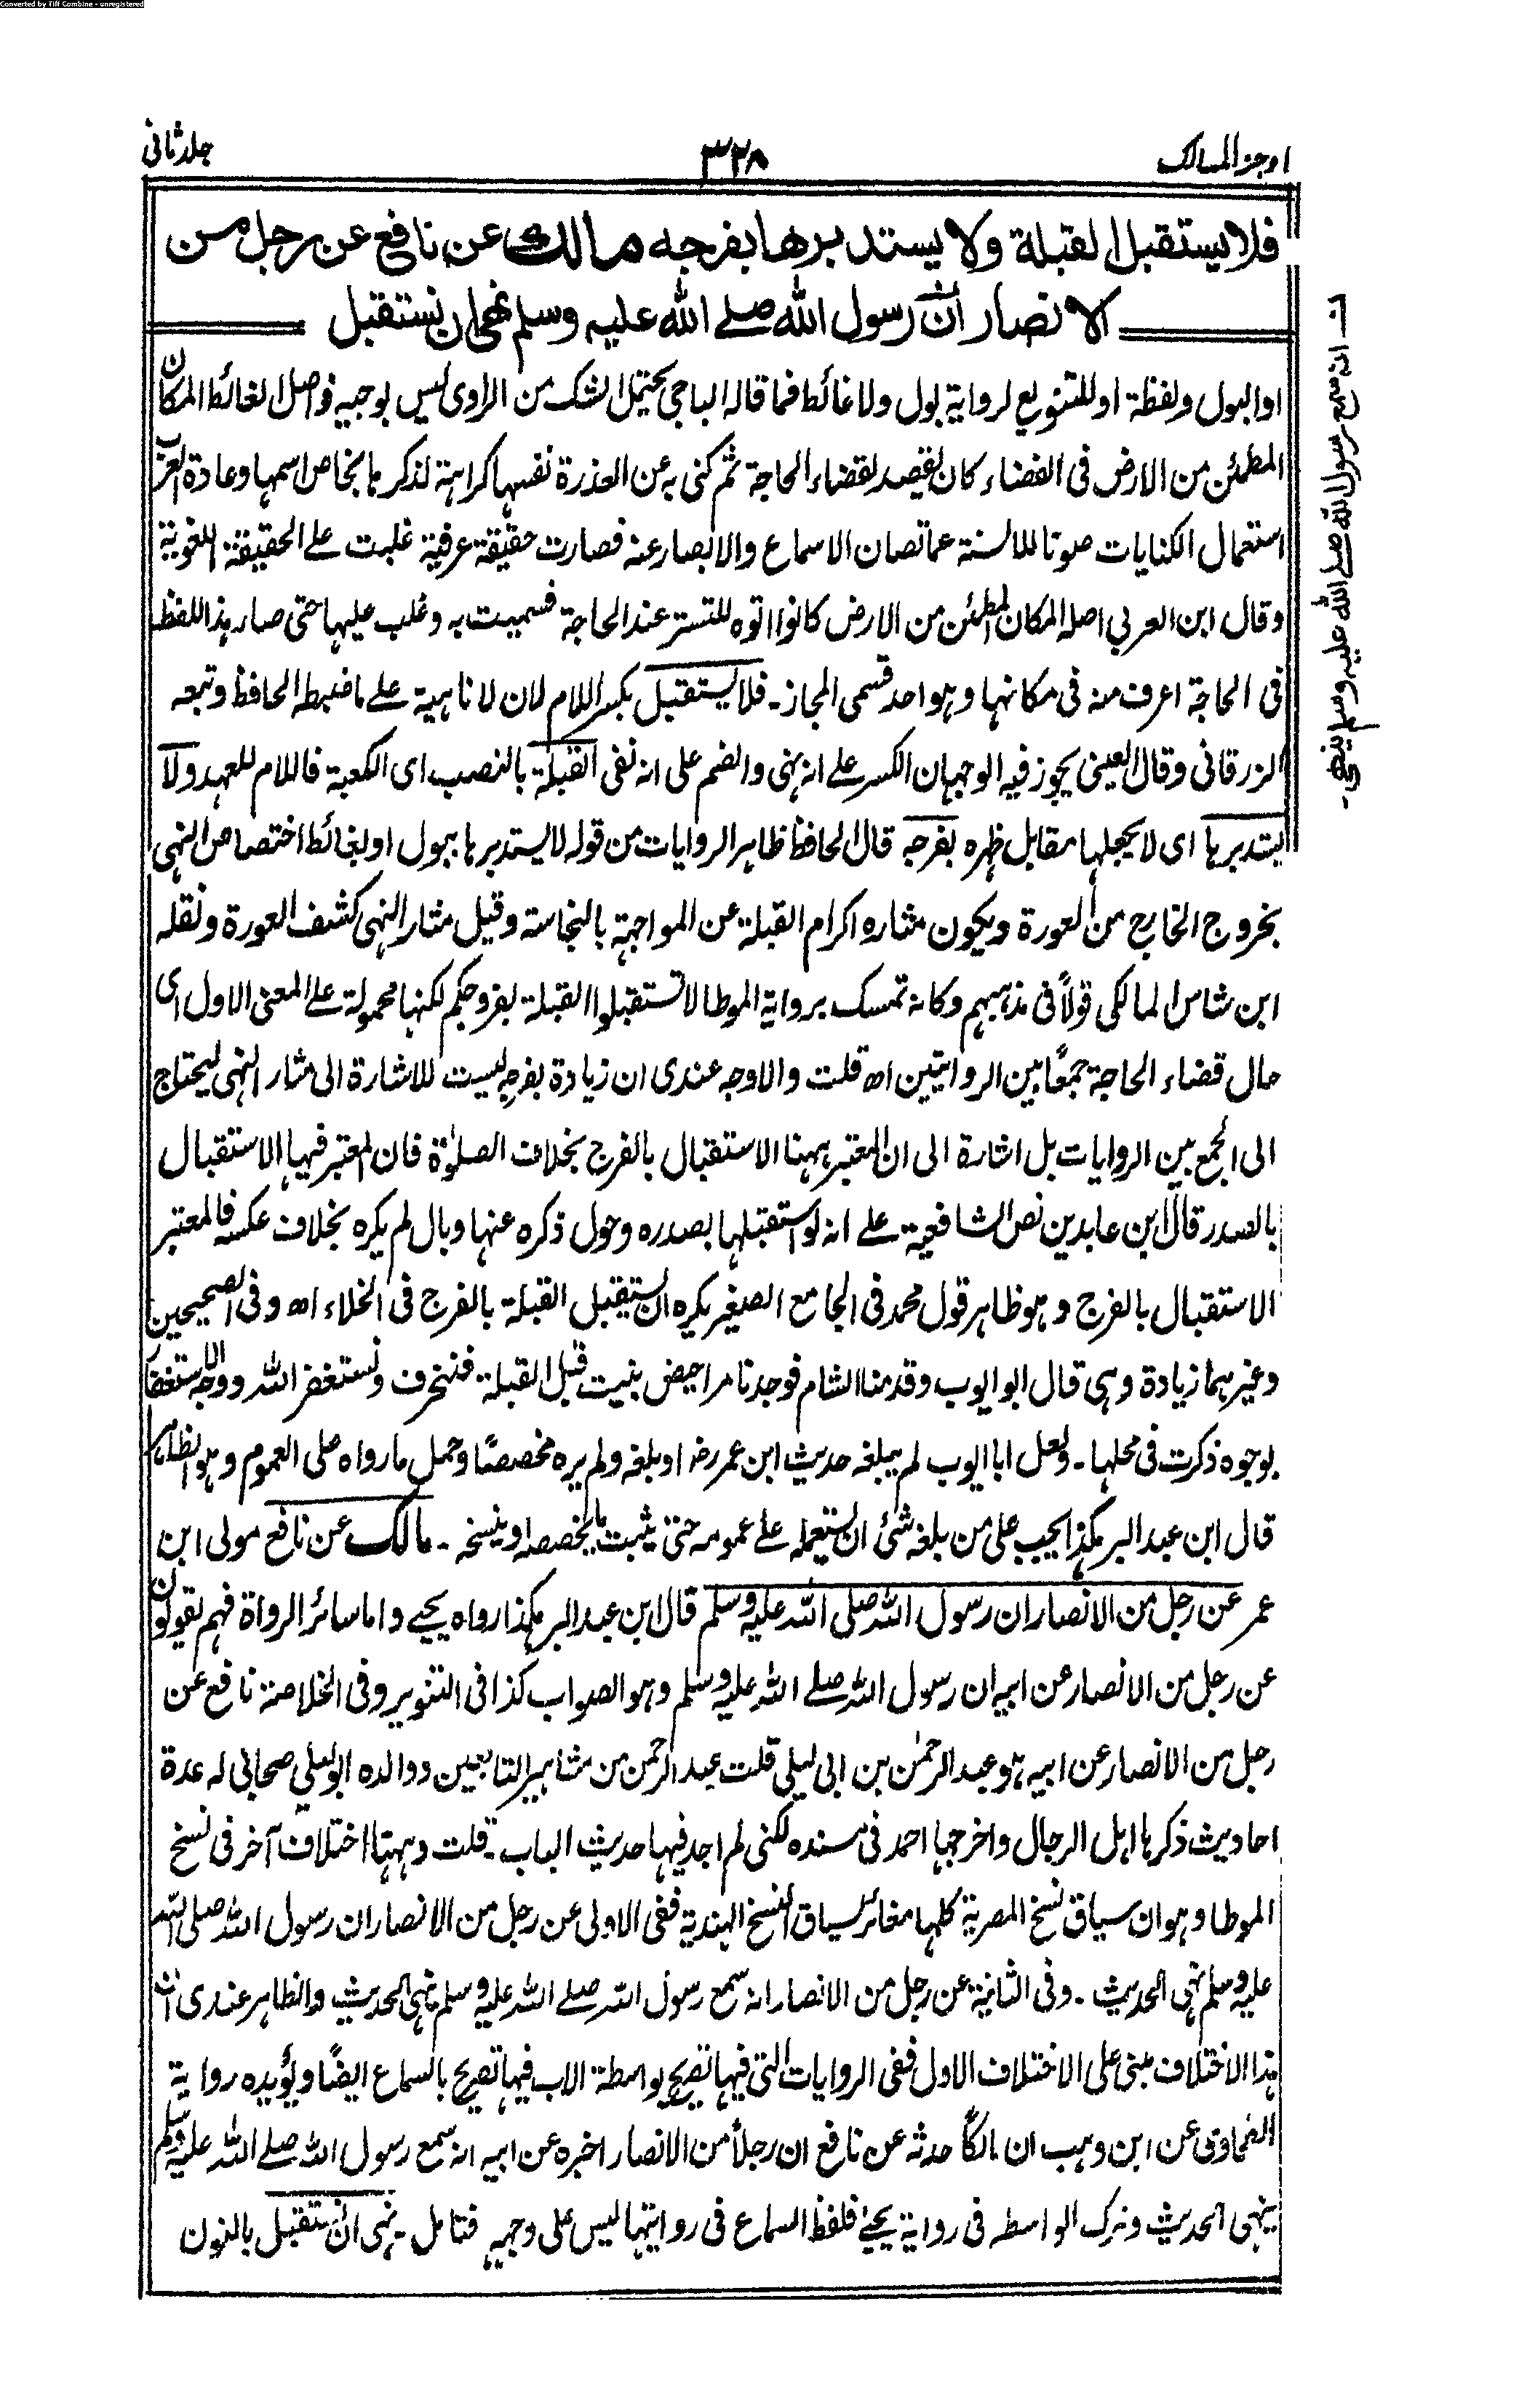 Converted by Tiff Combine - unregistered
اوجز المسالك ٣٢٨ جلد ثانی
فلا يستقبل القبلة ولا يستدبرها بفرجه مالك عن نافع عن رجل من
الانصار ان رسول الله صلے الله عليه وسلم نهى ان نستقبل
او البول ولفظة او للتنويع لرواية بول ولا غائط فما قاله الباجي يحتمل الشك من الراوي ليس بوجيه واصل الغائط المكان
المطمئن من الارض في الفضاء كان يقصد لقضاء الحاجة ثم كنى به عن العذرة نفسها كراهة لذكرها بخاص اسمها وعادة العرب
استعمال الكنايات صونا للالسنة عما تصان الاسماع والابصار عنه فصارت حقيقة عرفية غلبت علے الحقيقة اللغوية
وقال ابن العربي اصله المكان المطمئن من الارض كانوا اتوه للتستر عند الحاجة فسميت به وغلب عليها حتى صار هذا اللفظ
في الحاجة اعرف منه في مكانها وهو احد قسمي المجاز۔ فلا يستقبل بكسر اللام لان لا ناهية علے ما ضبطه الحافظ وتبعه
الزرقاني وقال العيني يجوز فيه الوجهان الكسر علے انه نهي والضم على انه نفي القبلة بالنصب اي الكعبة فاللام للعهد ولا
يستدبرها اي لا يجعلها مقابل ظهره بفرجه قال الحافظ ظاهر الروايات من قوله لا يستدبرها ببول او بغائط اختصاص النهي
بخروج الخارج من العورة ويكون مثاره اكرام القبلة عن المواجهة بالنجاسة وقيل مثار النهي كشف العورة ونقله
ابن شاس المالكي قولاً في مذهبهم وكانه تمسك برواية الموطا لا تستقبلوا القبلة بفروجكم لكنها محمولة علے المعنى الاول اي
حال قضاء الحاجة جمعًا بين الروايتين اه قلت والاوجه عندي ان زيادة بفرجه ليست للاشارة الى مثار النهي ليحتاج
الى الجمع بين الروايات بل اشارة الى ان المعتبر ههنا الاستقبال بالفرج بخلاف الصلوٰة فان المعتبر فيها الاستقبال
بالصدر قال ابن عابدين نص الشافعية علے انه لو استقبلها بصدره وحول ذكره عنها وبال لم يكره بخلاف عكسه فالمعتبر
الاستقبال بالفرج وهو ظاهر قول محمد في الجامع الصغير يكره ان يستقبل القبلة بالفرج في الخلاء اه وفي الصحيحين
وغيرهما زيادة وهي قال ابو ايوب وقدمنا الشام فوجدنا مراحيض بنيت قبل القبلة۔ فننحرف ونستغفر الله ووجه الاستغفار
بوجوه ذكرت في محلها۔ ولعل ابا ايوب لم يبلغه حديث ابن عمر رضـ او بلغه ولم يره مخصصًا وحمل ما رواه على العموم وهو الظاهر
قال ابن عبد البر هكذا يجب على من بلغه شئ ان يستعمله علے عمومه حتى يثبت ما يخصصه او ينسخه۔ مالك عن نافع مولى ابن
عمر عن رجل من الانصار ان رسول الله صلى الله عليه وسلم قال ابن عبد البر هكذا رواه يحيے واما سائر الرواة فهم يقولون
عن رجل من الانصار عن ابيه ان رسول الله صلے الله عليه وسلم وهو الصواب كذا في التنوير وفي الخلاصة نافع عن
رجل من الانصار عن ابيه هو عبد الرحمٰن بن ابي ليلى قلت عبد الرحمن من مشاهير التابعين ووالده ابو ليلى صحابي له عدة
احاديث ذكرها اهل الرجال واخرجها احمد في مسنده لكني لم اجد فيها حديث الباب۔ قلت وههنا اختلاف آخر في نسخ
الموطا وهو ان سياق نسخ المصرية كلها مغائر لسياق النسخ الهندية ففي الاولى عن رجل من الانصار ان رسول الله صلى الله
عليه وسلم نهى الحديث۔ وفي الثانية عن رجل من الانصار انه سمع رسول الله صلے الله عليه وسلم ينهى الحديث والظاهر عندي ان
هذا الاختلاف مبني على الاختلاف الاول ففي الروايات التي فيها تصريح بواسطة الاب فيها تصريح بالسماع ايضًا ويؤيده رواية
الطحاوي عن ابن وهب ان مالكًا حدثه عن نافع ان رجلاً من الانصار اخبره عن ابيه انه سمع رسول الله صلے الله عليه وسلم
ينهى الحديث وترك الواسطه في رواية يحيے فلفظ السماع في روايتها ليس على وجهه فتامل۔ نهى ان نستقبل بالنون
انه سمع رسول الله صلے الله عليه وسلم ينهى۔